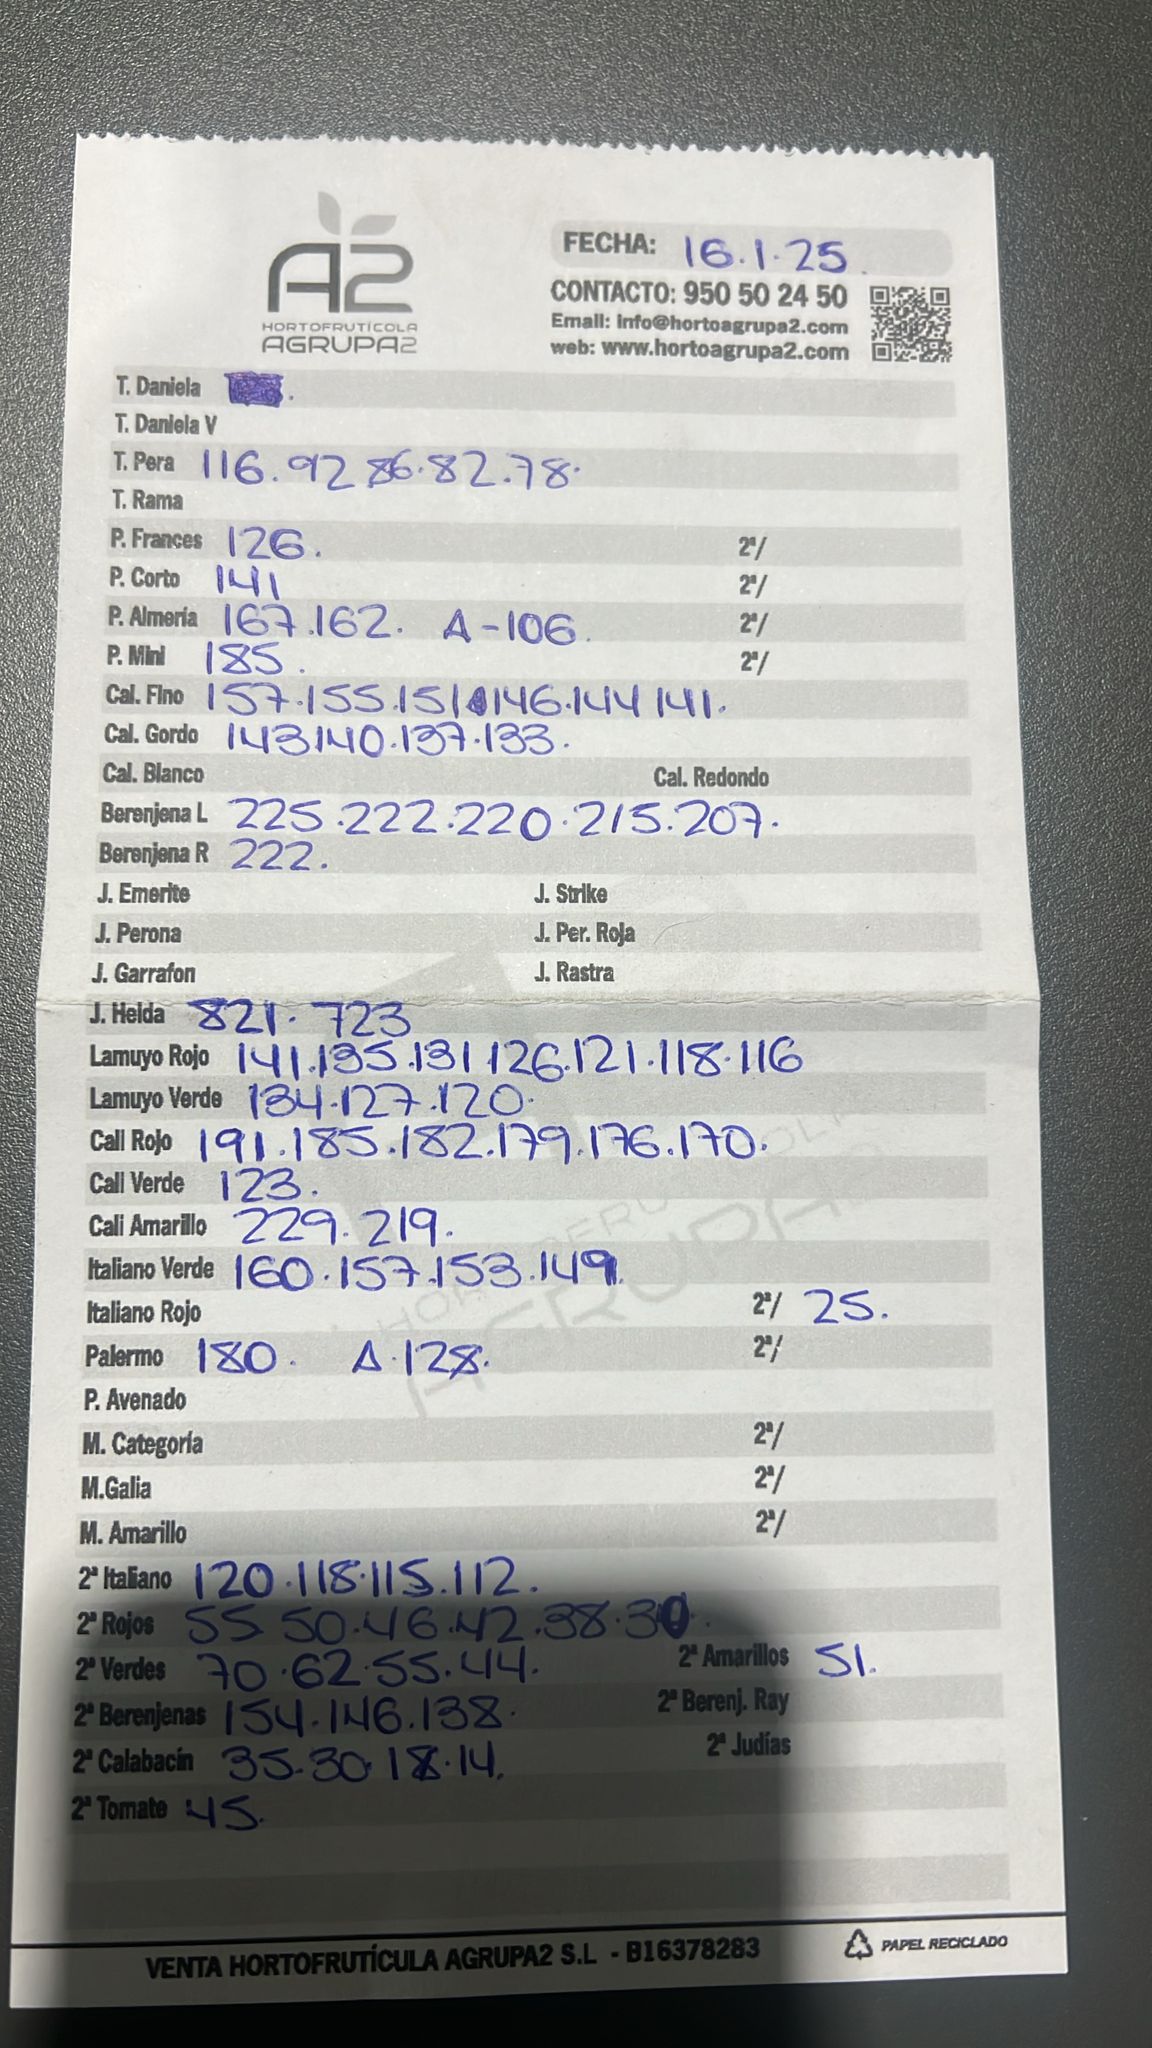 A2
HORTOFRUTÍCOLA
AGRUPA2
FECHA: 16.1.25.
CONTACTO: 950 50 24 50
Email: info@hortoagrupa2.com
web: www.hortoagrupa2.com
T. Daniela
T. Daniela V
T. Pera 116.92 86.82.78.
T. Rama
P. Frances 126. 2ª/
P. Corto 141 2ª/
P. Almería 167.162. A-106. 2ª/
P. Mini 185. 2ª/
Cal. Fino 157.155.151 146.144 141.
Cal. Gordo 143 140.137.133.
Cal. Blanco Cal. Redondo
Berenjena L 225.222.220.215.207.
Berenjena R 222.
J. Emerite J. Strike
J. Perona J. Per. Roja
J. Garrafon J. Rastra
J. Helda 821. 723
Lamuyo Rojo 141.135.131 126.121.118.116
Lamuyo Verde 134.127.120.
Cali Rojo 191.185.182.179.176.170.
Cali Verde 123.
Cali Amarillo 229.219.
Italiano Verde 160.157.153.149.
Italiano Rojo 2ª/ 25.
Palermo 180. A.128. 2ª/
P. Avenado
M. Categoría 2ª/
M.Galia 2ª/
M. Amarillo 2ª/
2ª Italiano 120.118.115.112.
2ª Rojos 55 50.46.42.38.30.
2ª Verdes 70.62.55.44. 2ª Amarillos 51.
2ª Berenjenas 154.146.138. 2ª Berenj. Ray
2ª Calabacín 35.30.18.14. 2ª Judías
2ª Tomate 45.
VENTA HORTOFRUTÍCULA AGRUPA2 S.L - B16378283 PAPEL RECICLADO